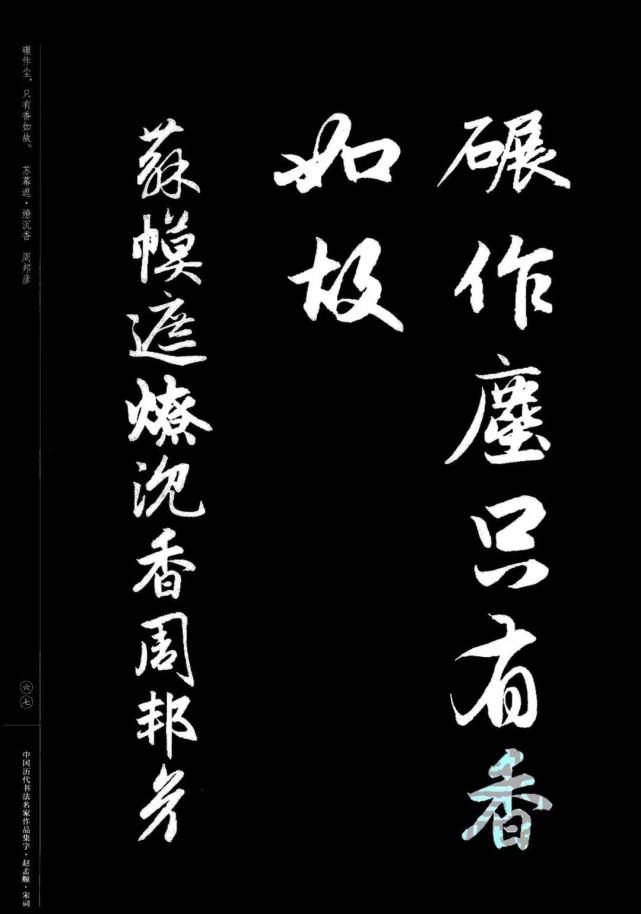 碾作塵只有香
如故
蘇幙遮燎沉香周邦彦
碾作尘，只有香如故。 苏幕遮·燎沉香 周邦彦
六七
中国历代书法名家作品集字·赵孟頫·宋词